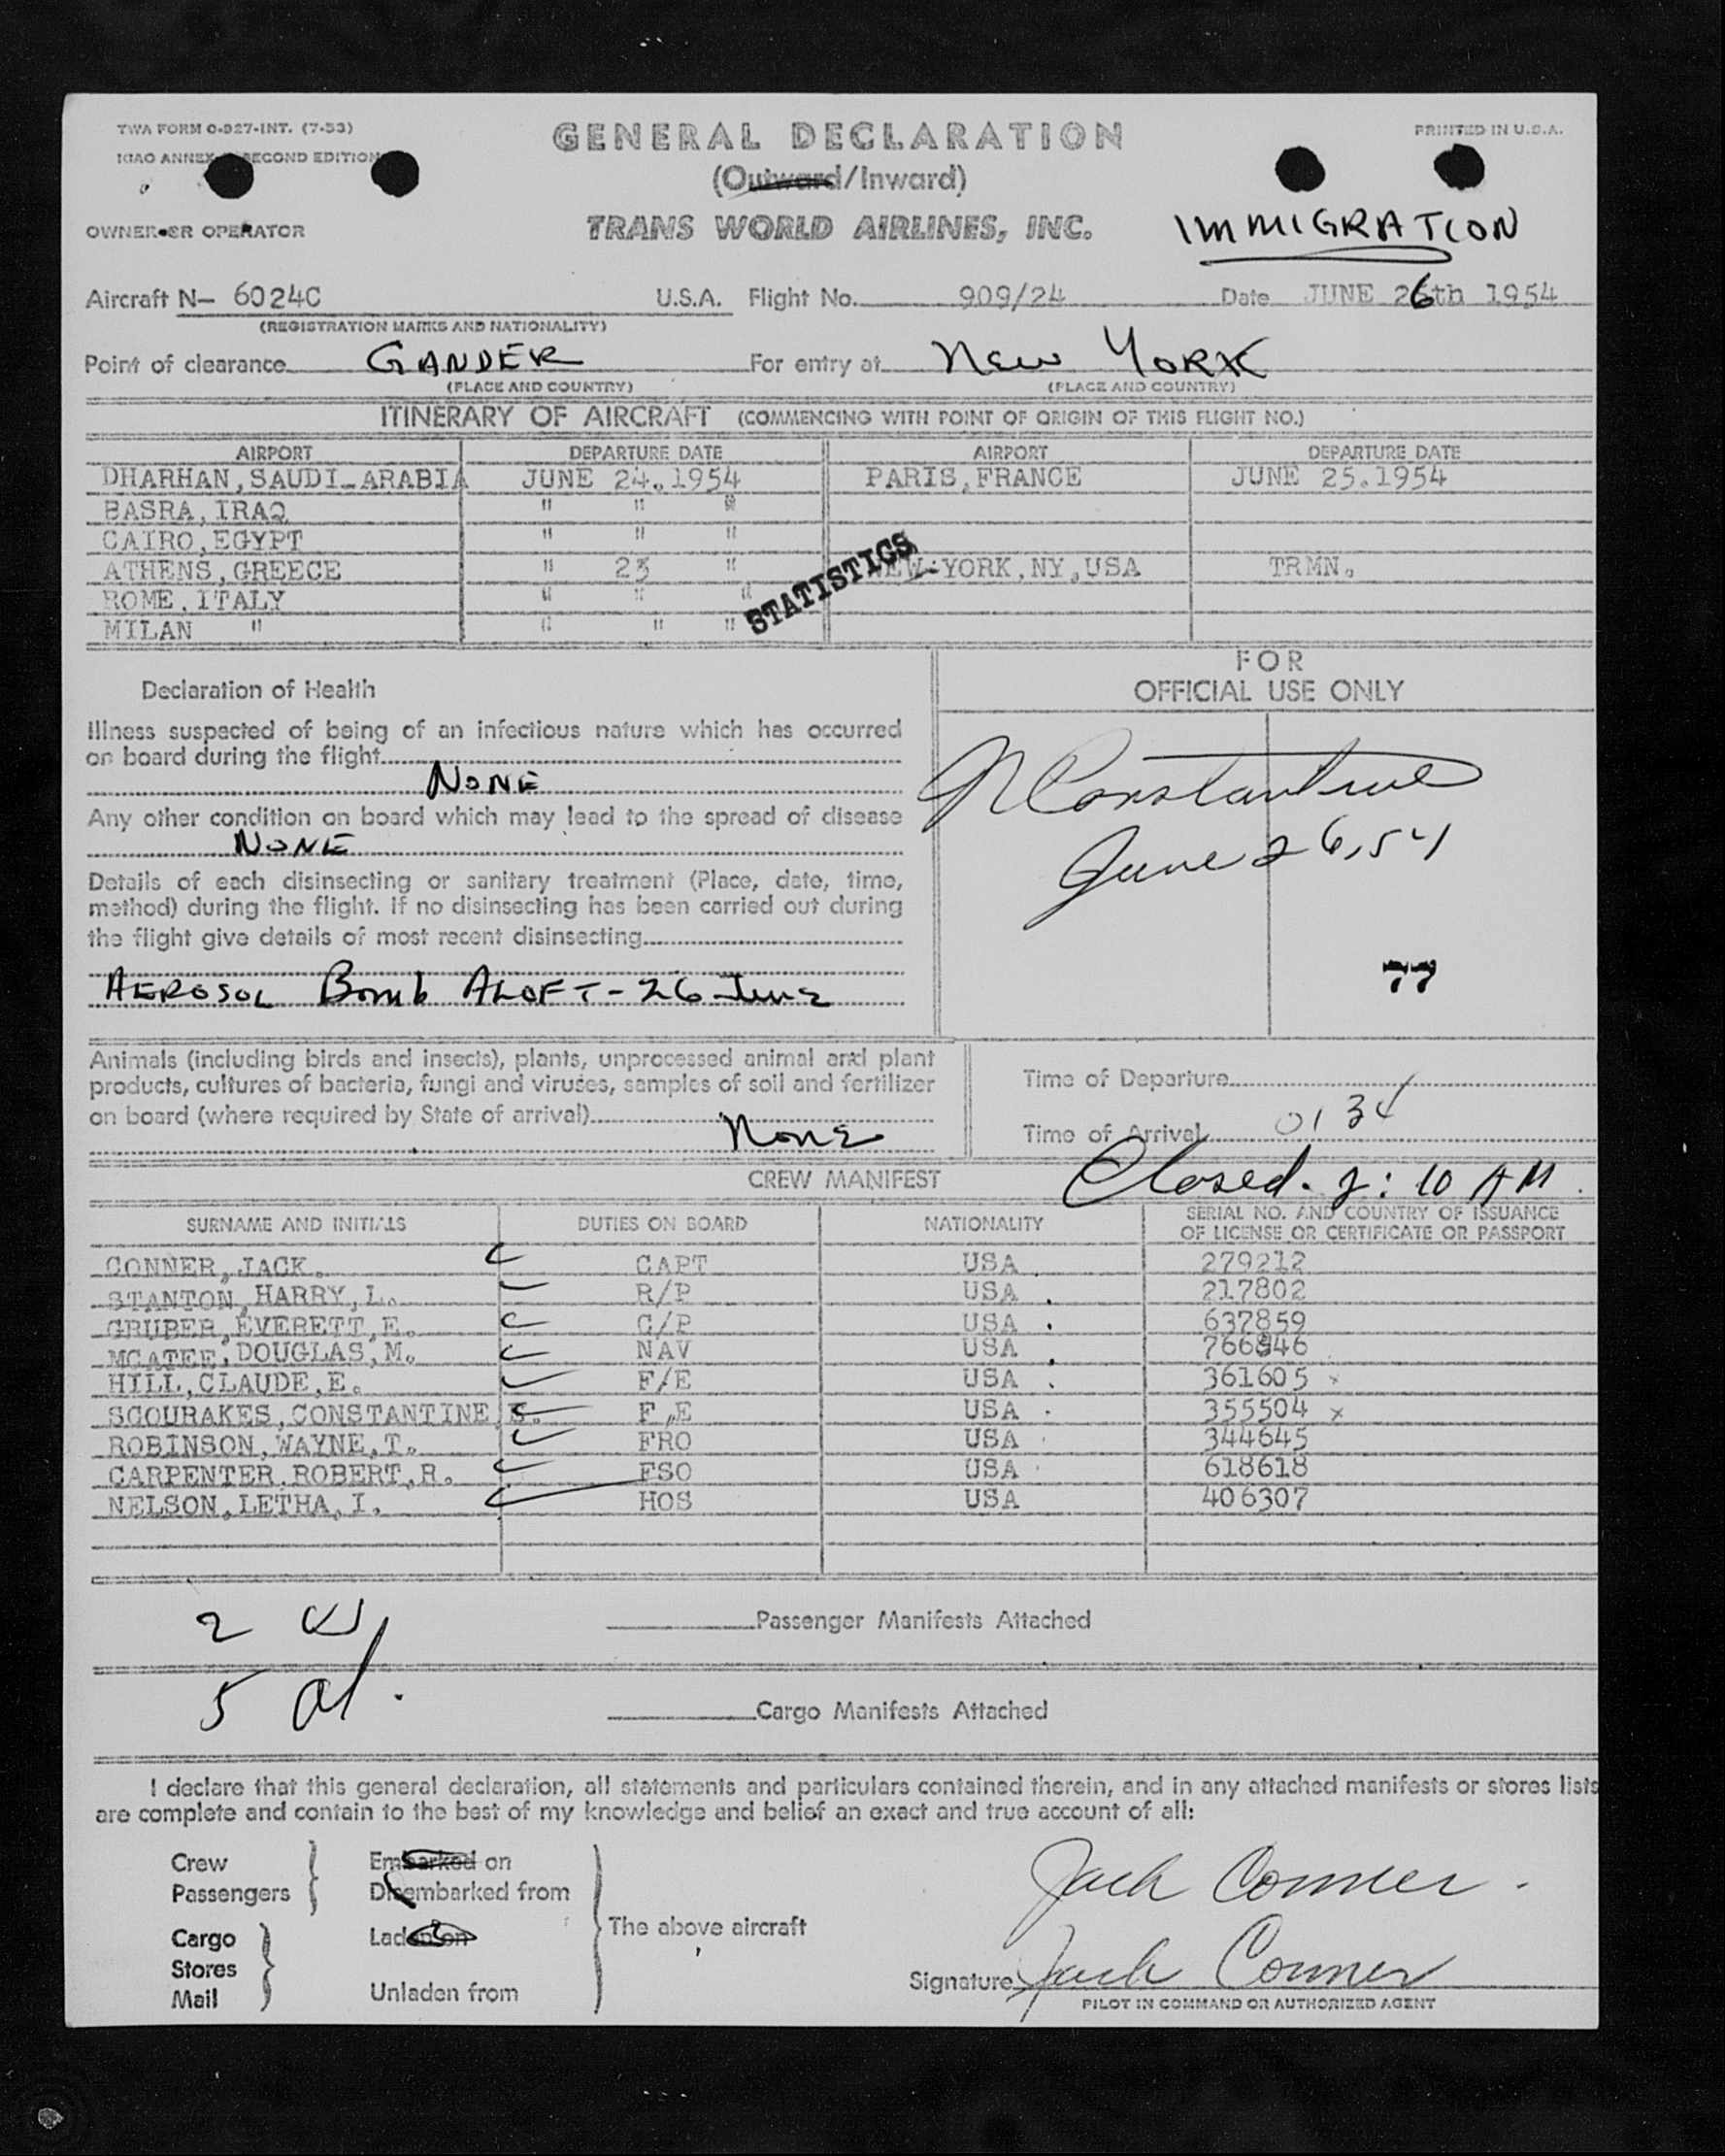 TWA FORM O-927-INT. (7-53)
GENERAL DECLARATION
PRINTED IN U.S.A.
ICAO ANNEX SECOND EDITION
(Outward/Inward)
OWNER OR OPERATOR
TRANS WORLD AIRLINES, INC.
IMMIGRATION
Aircraft N— 6024C U.S.A. Flight No. 909/24 Date JUNE 26th 1954
(REGISTRATION MARKS AND NATIONALITY)
Point of clearance GANDER For entry at NEW YORK
(PLACE AND COUNTRY) (PLACE AND COUNTRY)
ITINERARY OF AIRCRAFT (COMMENCING WITH POINT OF ORIGIN OF THIS FLIGHT NO.)
AIRPORT DEPARTURE DATE AIRPORT DEPARTURE DATE
DHARHAN, SAUDI ARABIA JUNE 24.1954 PARIS, FRANCE JUNE 25.1954
BASRA, IRAQ " " "
CAIRO, EGYPT " " "
ATHENS, GREECE " 25 " NEW YORK, NY, USA TRMN.
ROME, ITALY " " "
MILAN " " " "
STATISTICS
FOR
OFFICIAL USE ONLY
Declaration of Health
Illness suspected of being of an infectious nature which has occurred
on board during the flight
NONE
Any other condition on board which may lead to the spread of disease
NONE
Details of each disinsecting or sanitary treatment (Place, date, time,
method) during the flight. If no disinsecting has been carried out during
the flight give details of most recent disinsecting
AEROSOL Bomb ALOFT - 26 June
N Constantine
June 26, 54
77
Animals (including birds and insects), plants, unprocessed animal and plant
products, cultures of bacteria, fungi and viruses, samples of soil and fertilizer
on board (where required by State of arrival)
None
Time of Departure
Time of Arrival 0134
Closed. 2:10 AM.
CREW MANIFEST
SURNAME AND INITIALS DUTIES ON BOARD NATIONALITY SERIAL NO. AND COUNTRY OF ISSUANCE
OF LICENSE OR CERTIFICATE OR PASSPORT
CONNER, JACK. CAPT USA 279212
STANTON, HARRY, L. R/P USA 217802
GRUBER, EVERETT, E. C/P USA 637859
MCATEE, DOUGLAS, M. NAV USA 766846
HILL, CLAUDE, E. F/E USA 361605 x
SCOURAKES, CONSTANTINE, S. F,E USA 355504 x
ROBINSON, WAYNE, T. FRO USA 344645
CARPENTER, ROBERT, R. FSO USA 618618
NELSON, LETHA, I. HOS USA 406307
2
Passenger Manifests Attached
5 al.
Cargo Manifests Attached
I declare that this general declaration, all statements and particulars contained therein, and in any attached manifests or stores lists
are complete and contain to the best of my knowledge and belief an exact and true account of all:
Crew Embarked on
Passengers Disembarked from
Cargo Laden on
Stores
Mail Unladen from
The above aircraft
Jack Conner.
Signature Jack Conner
PILOT IN COMMAND OR AUTHORIZED AGENT